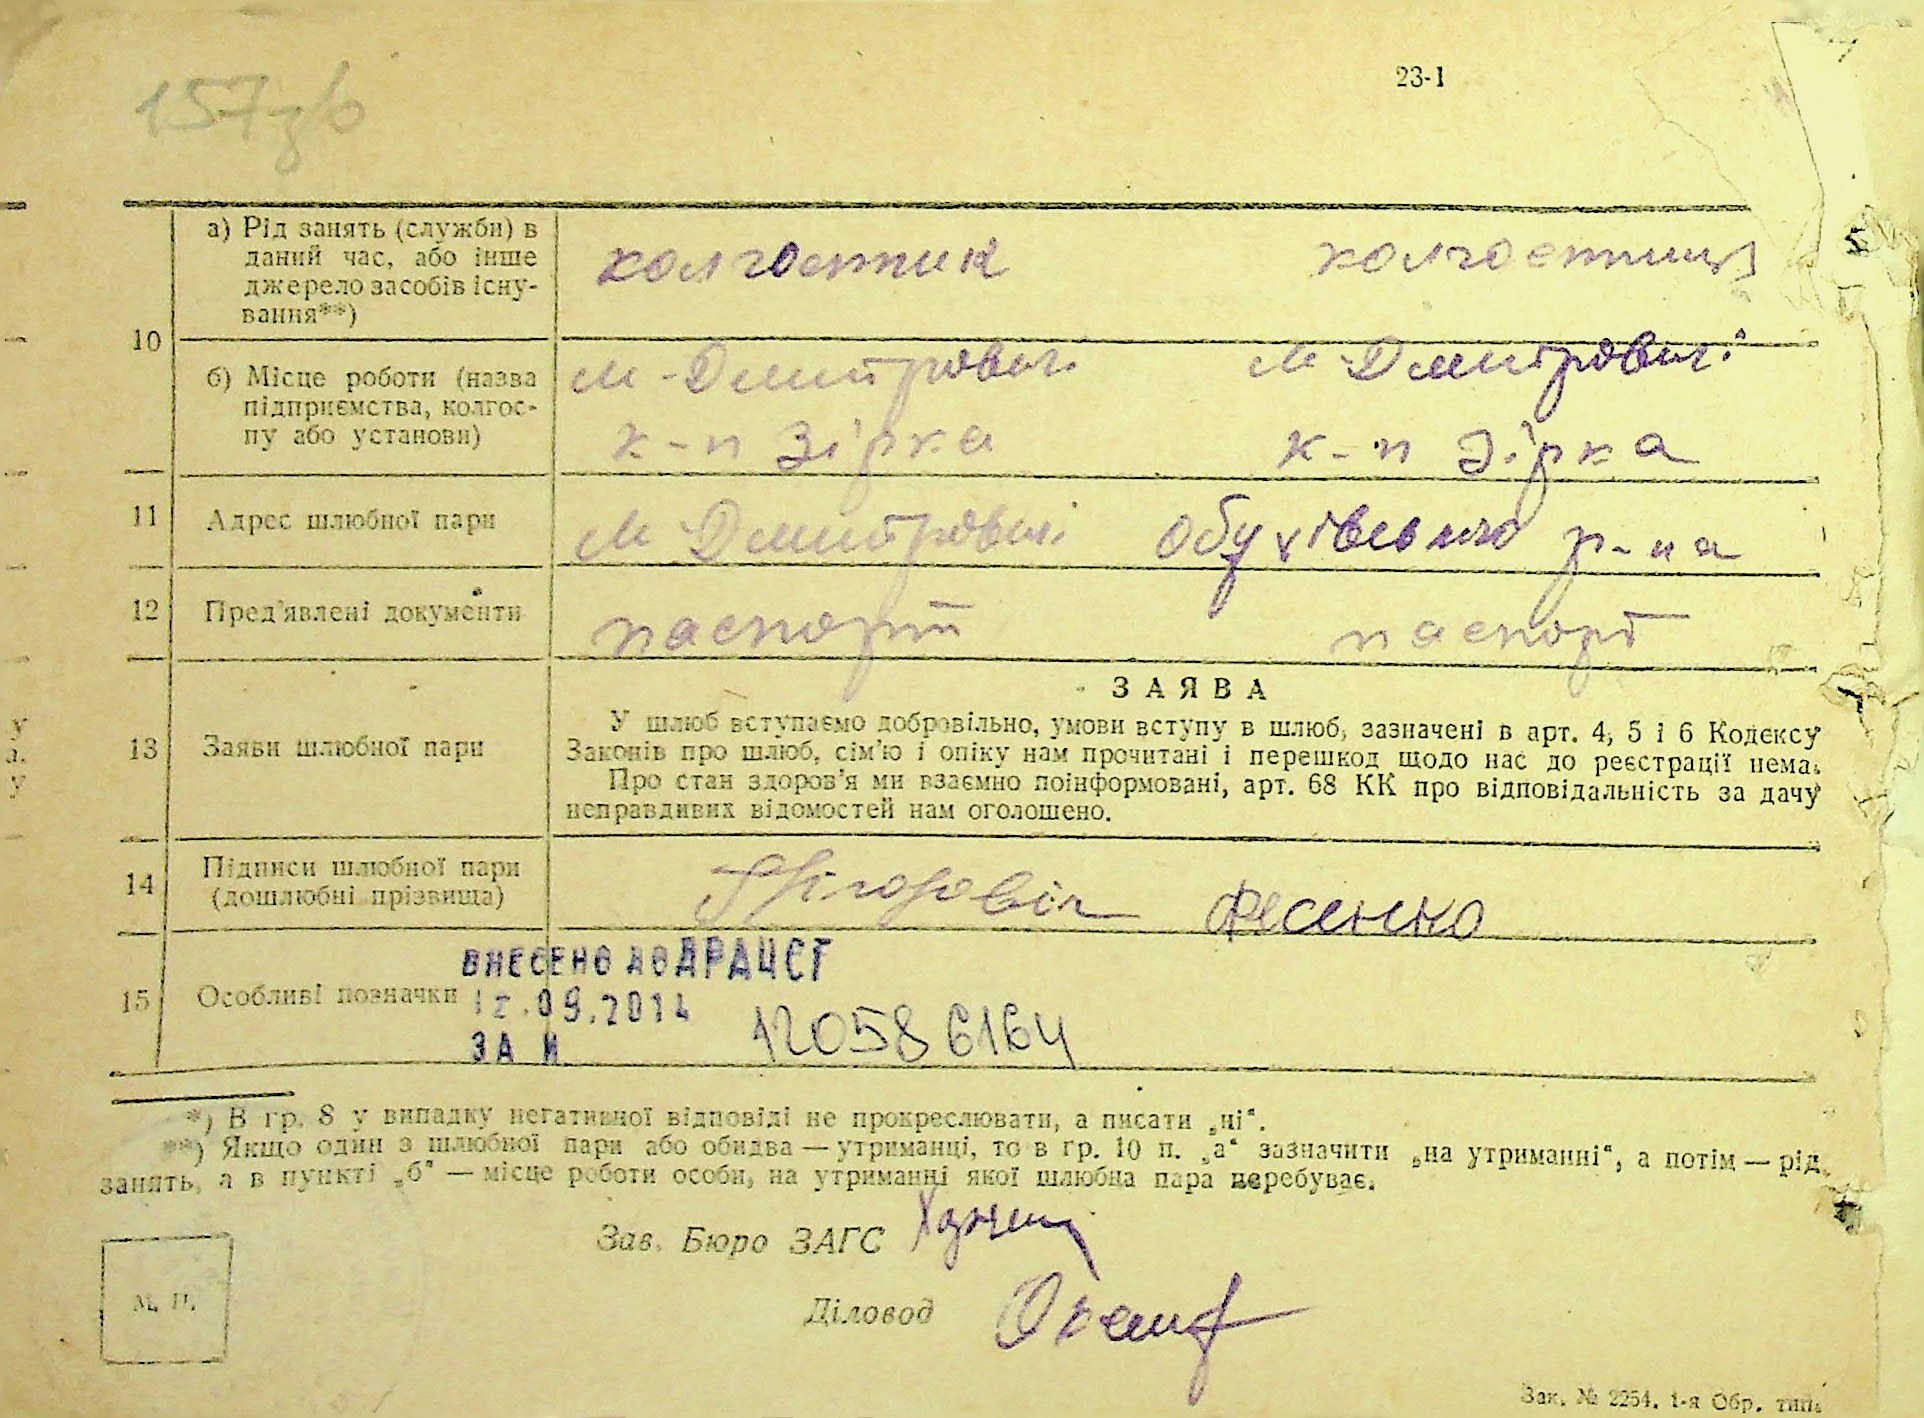 157зв
23-1
10
а) Рід занять (служби) в
даний час, або інше
джерело засобів існу-
вання**)
колгоспник
колгоспниця
б) Місце роботи (назва
підприємства, колгос-
пу або установи)
М-Дмитрович.
М-Дмитрович.
к-п Зірка
к-п Зірка
11
Адрес шлюбної пари
М Дмитрович. Обухівського р-на
12
Пред'явлені документи
паспорт
паспорт
ЗАЯВА
13
Заяви шлюбної пари
У шлюб вступаємо добровільно, умови вступу в шлюб, зазначені в арт. 4, 5 і 6 Кодексу
Законів про шлюб, сім'ю і опіку нам прочитані і перешкод щодо нас до реєстрації нема.
Про стан здоров'я ми взаємно поінформовані, арт. 68 КК про відповідальність за дачу
неправдивих відомостей нам оголошено.
14
Підписи шлюбної пари
(дошлюбні прізвища)
Фесенко
15
Особливі позначки
ВНЕСЕНО ДО ДРАЦСГ
12.09.2014
ЗА №
120586164
*) В гр. 8 у випадку негативної відповіді не прокреслювати, а писати „ні“.
**) Якщо один з шлюбної пари або обидва — утриманці, то в гр. 10 п. „а“ зазначити „на утриманні“, а потім — рід
занять, а в пункті „б“ — місце роботи особи, на утриманні якої шлюбна пара перебуває.
Зав. Бюро ЗАГС
М. П.
Діловод
Зак. № 2254. 1-я Обр. тип.